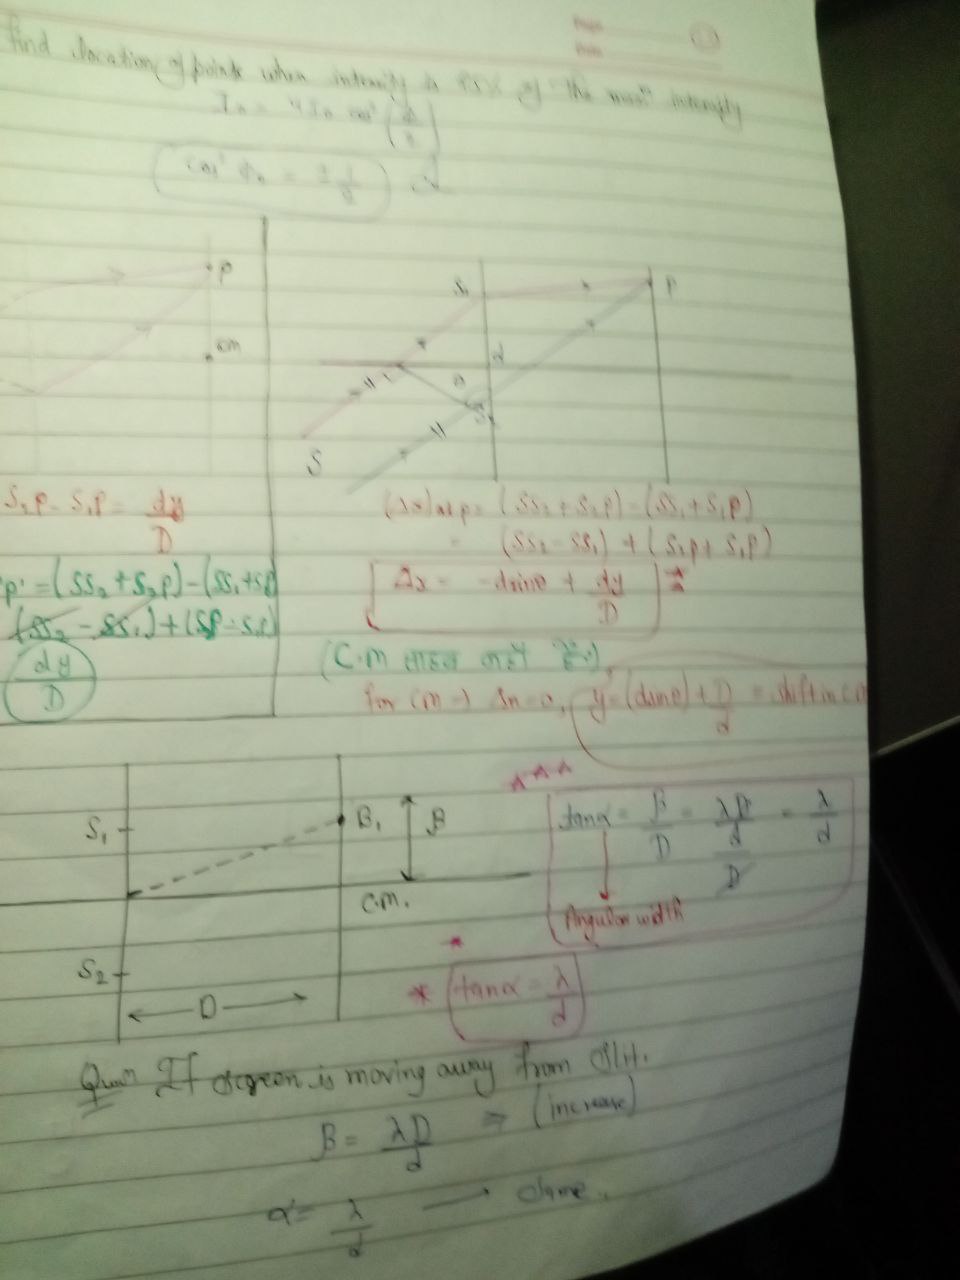 find location of points when intensity is 75% of the maxm intensity
P
P
cm
S1
d
θ
S2
S
S2P - S1P = dy/D
(Δx) at p = (SS2 + S2P) - (SS1 + S1P)
= (SS2 - SS1) + (S2P + S1P)
Δx = -dsinθ + dy/D
'p' = (SS2 + S2P) - (SS1 + SP
(SS2 - SS1) + (SP - S1P)
dy/D
(C.M
for CM → Δx = 0, y = (dsinθ) + D/d = shift in CM
S1
B1
β
C.M.
S2
D
tanα = β/D = λD/d/D = λ/d
Angular width
* tanα = λ/d
Ques If screen is moving away from slit.
β = λD/d ⇒ (increase)
α = λ/d → same.